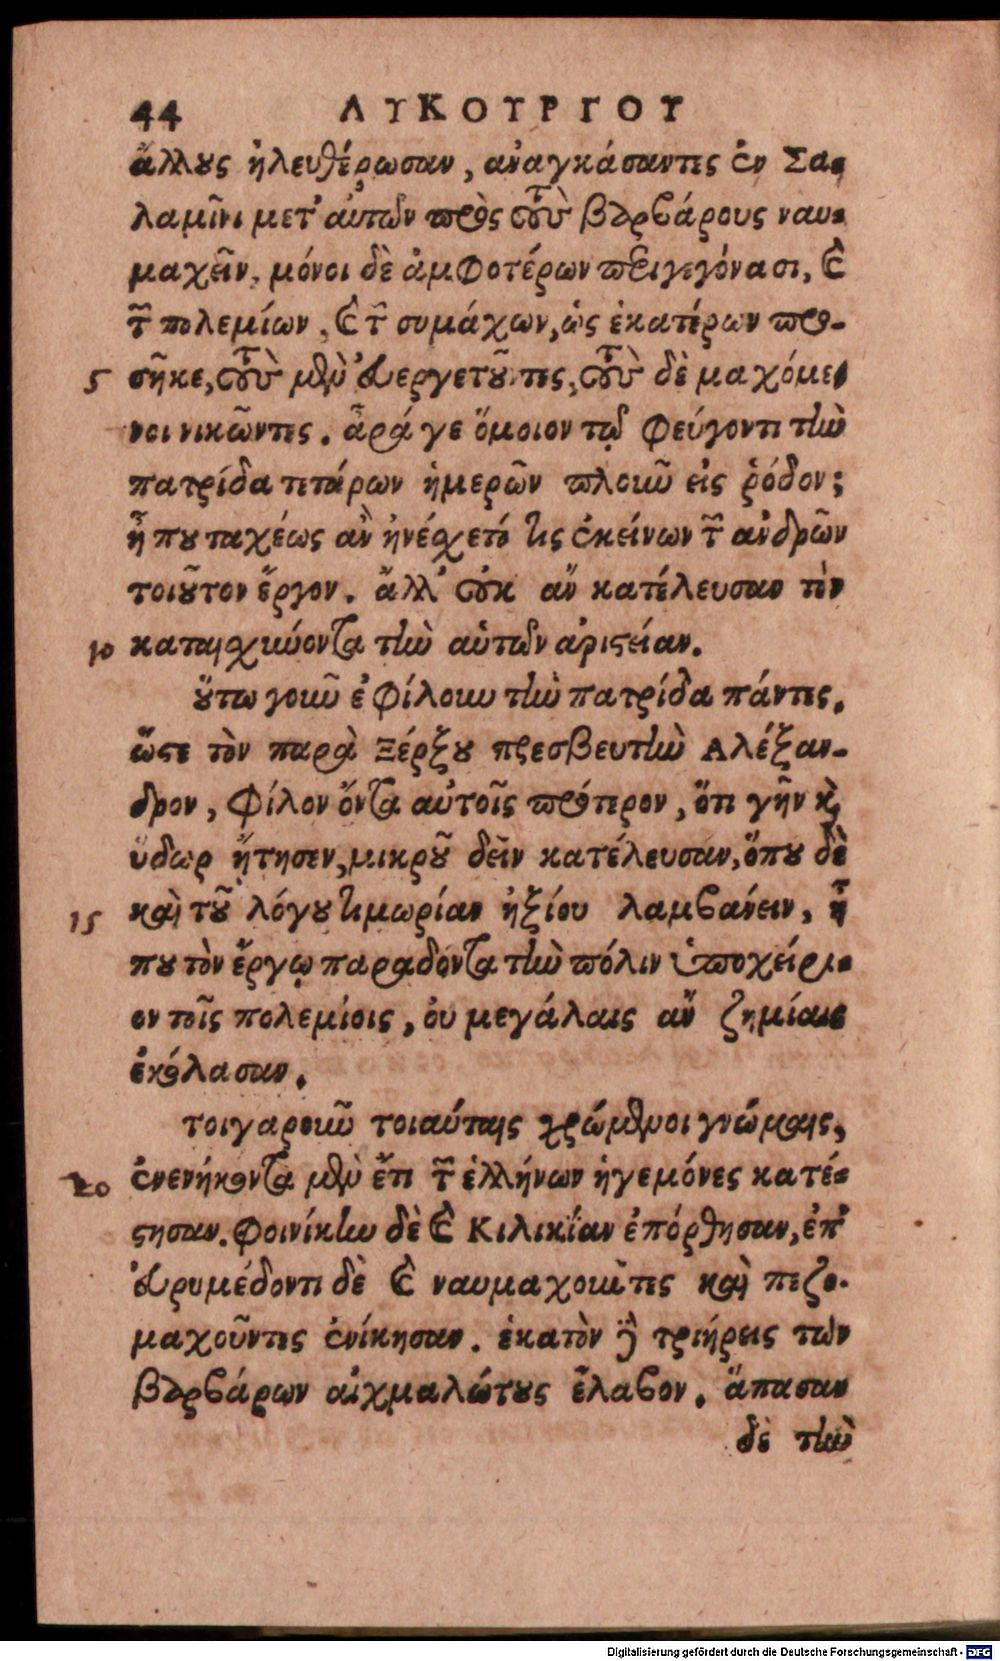 44 ΛΥΚΟΥΡΓΟΥ
ἄλλους ἠλευθέρωσαν, ἀναγκάσαντες ἐν Σα-
λαμῖνι μετ' αὐτῶν πρὸς τοὺς βαρβάρους ναυ-
μαχεῖν, μόνοι δὲ ἀμφοτέρων περιγεγόνασι, καὶ
τῶν πολεμίων, καὶ τῶν συμάχων, ὡς ἑκατέρων προ-
5 σῆκε, τοὺς μὲν εὐεργετοῦντες, τοὺς δὲ μαχόμε-
νοι νικῶντες. ἆρά γε ὅμοιον τῷ φεύγοντι τὴν
πατρίδα τετάρων ἡμερῶν πλοῦν εἰς ῥόδον;
ἦ που ταχέως ἂν ἠνέχετό τις ἐκείνων τῶν ἀνδρῶν
τοιοῦτον ἔργον. ἄλλ' οὐκ ἄν κατέλευσαν τὸν
10 καταισχύνοντα τὴν αὑτῶν ἀριστείαν.
οὕτω γοῦν ἐφίλουν τὴν πατρίδα πάντες,
ὥστε τὸν παρὰ Ξέρξου πρεσβευτὴν Αλέξαν-
δρον, φίλον ὄντα αὐτοῖς πρότερον, ὅτι γῆν καὶ
ὕδωρ ᾔτησεν, μικροῦ δεῖν κατέλευσαν, ὅπου δὲ
15 καὶ τοῦ λόγου τιμωρίαν ἠξίου λαμβάνειν, ἦ
που τὸν ἔργῳ παραδόντα τὴν πόλιν ὑποχείρι-
ον τοῖς πολεμίοις, οὐ μεγάλαις ἂν ζημίαις
ἐκόλασαν.
τοιγαροῦν τοιαύταις χρώμενοι γνώμαις,
20 ἐνενήκοντα μὲν ἔτι τῶν ἑλλήνων ἡγεμόνες κατέ-
στησαν. Φοινίκην δὲ καὶ Κιλικίαν ἐπόρθησαν, ἐπ'
εὐρυμέδοντι δὲ καὶ ναυμαχοῦντες καὶ πεζο-
μαχοῦντες ἐνίκησαν. ἑκατὸν δὲ τριήρεις τῶν
βαρβάρων αἰχμαλώτους ἔλαβον. ἅπασαν
δὲ τὴν
Digitalisierung gefördert durch die Deutsche Forschungsgemeinschaft - DFG